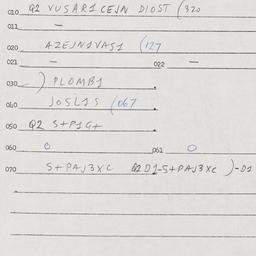 010 Q2 VUSAR1 CEJN DIOST (320
011 -
020 AZEJN1VAS1 (127
021 - 022 -
030 ) PLOMB1
040 JOSL1S (067
050 Q2 S+P1G+
060 0 061 0
070 S+PAJ3XC Q2D1-S+PAJ3XC )-D1